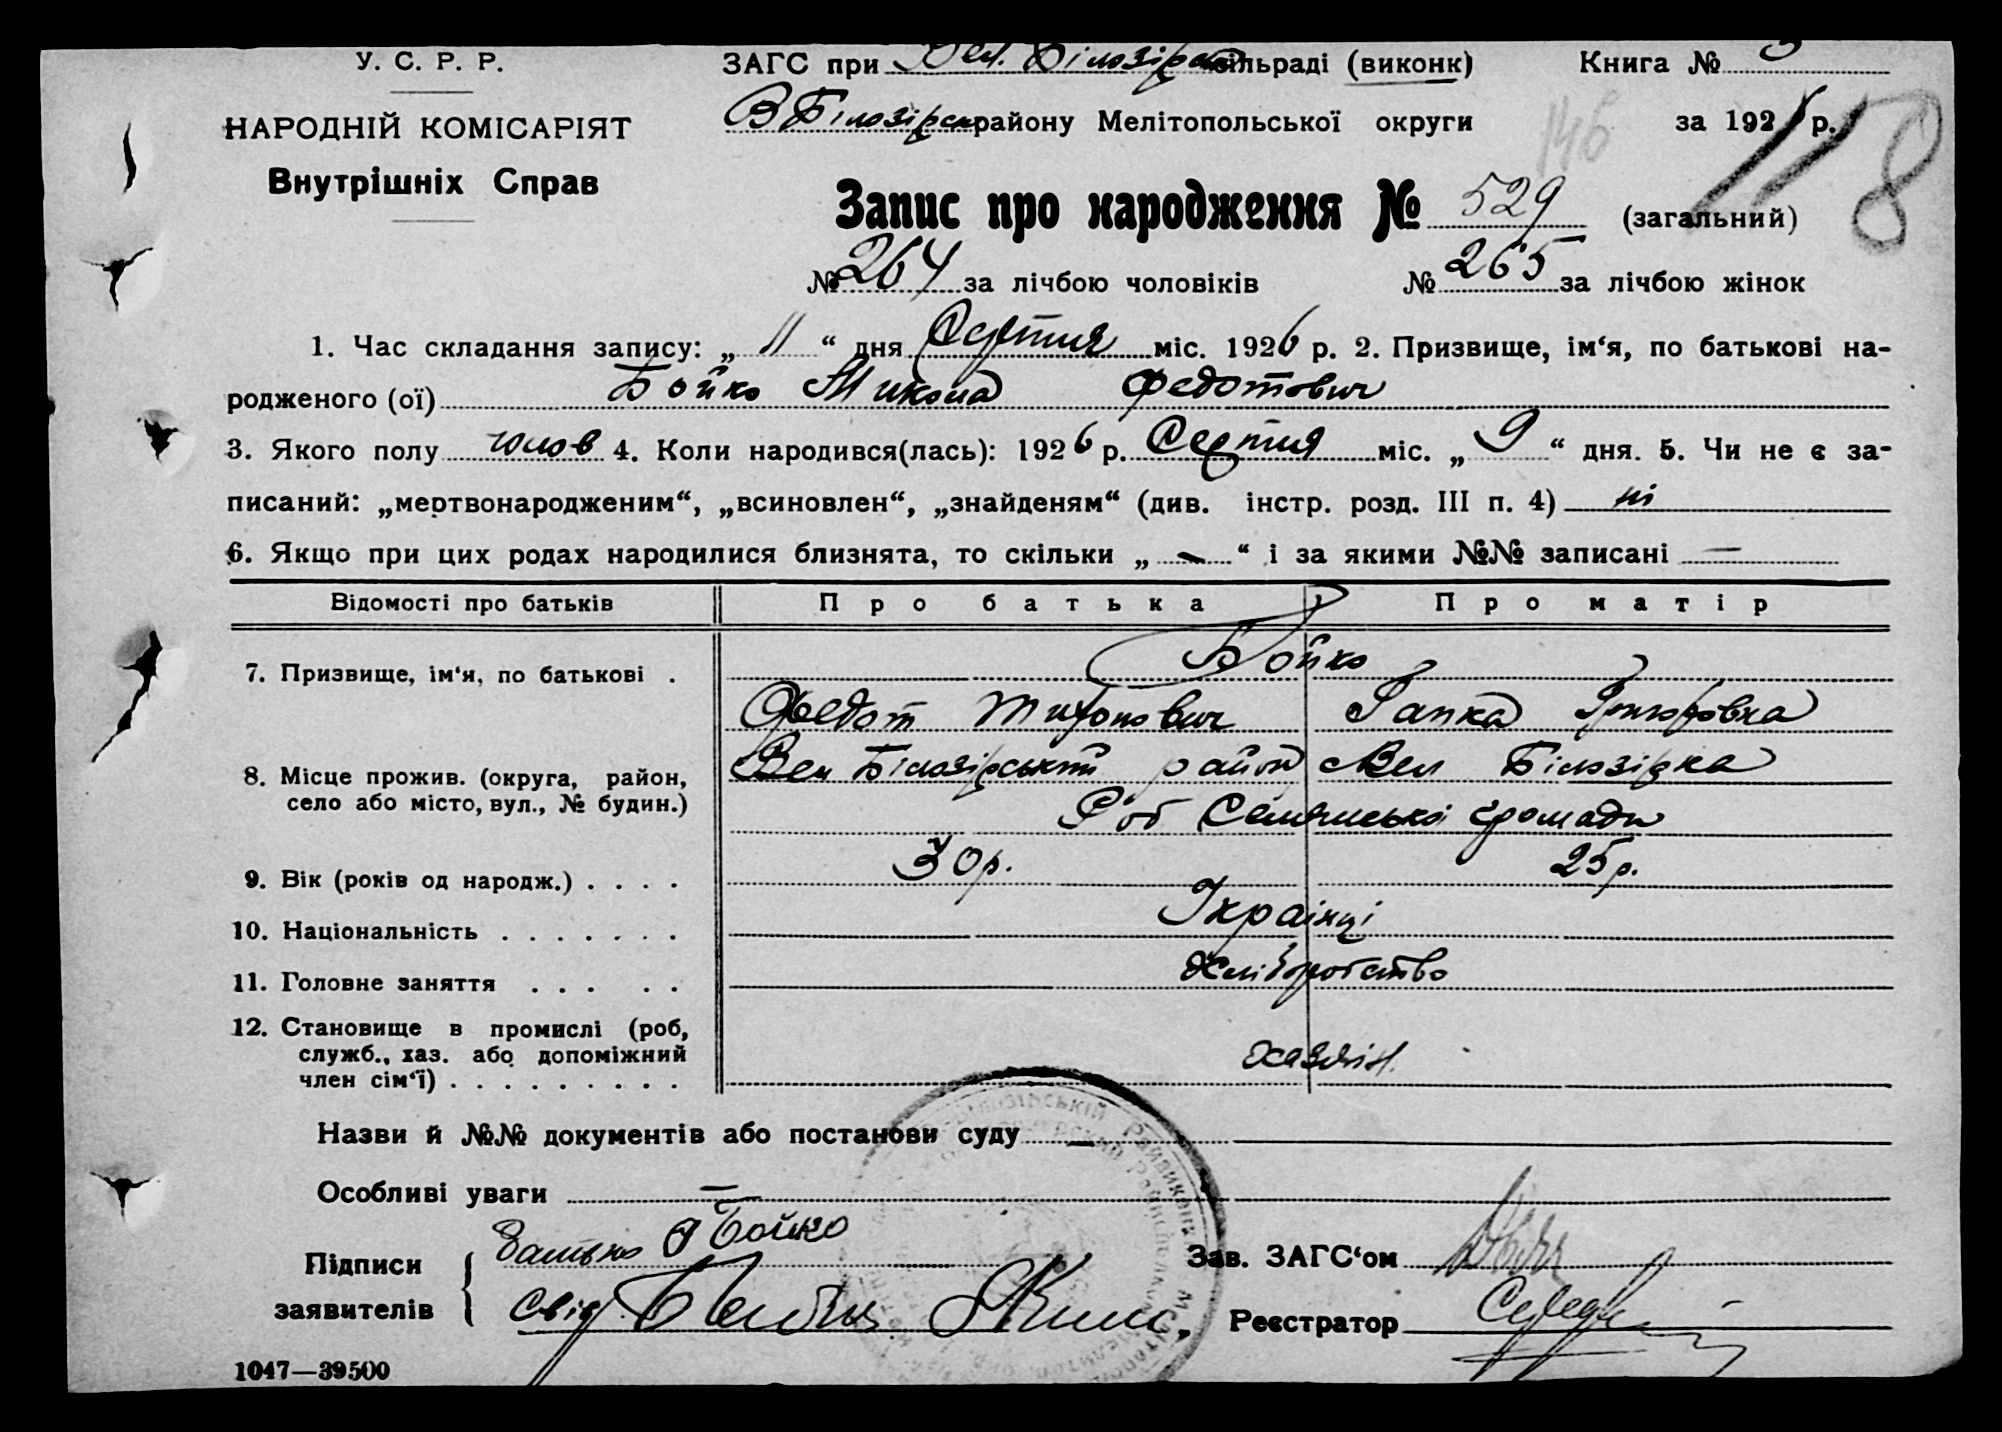 У. С. Р. Р.
НАРОДНІЙ КОМІСАРІЯТ
Внутрішніх Справ
ЗАГС при Вел. Білозірськ сільраді (виконк)
Книга № 3
В Білозірськ району Мелітопольської округи
за 1926 р.
146
118
Запис про народження № 529 (загальний)
№ 264 за лічбою чоловіків № 265 за лічбою жінок
1. Час складання запису: „ 11 “ дня Серпня міс. 1926 р. 2. Призвище, ім‘я, по батькові на-
родженого (ої) Бойко Микола Федотович
3. Якого полу чолов 4. Коли народився(лась): 1926 р. Серпня міс. „ 9 “ дня. 5. Чи не є за-
писаний: „мертвонародженим“, „всиновлен“, „знайденям“ (див. інстр. розд. III п. 4) ні
6. Якщо при цих родах народилися близнята, то скільки „ — “ і за якими №№ записані —
Відомості про батьків Про батька Про матір
7. Призвище, ім‘я, по батькові . Бойко
Федот Тихонович Гапка Григоровна
8. Місце прожив. (округа, район, Вел Білозірський район Вел Білозірка
село або місто, вул., № будин.) Роб Селянської громади
9. Вік (років од народж.) . . . . 30 р. 25 р.
10. Національність . . . . . . . Українці
11. Головне заняття . . . . . Хліборобство
12. Становище в промислі (роб,
служб., хаз. або допоміжний Хазяїн.
член сім‘ї) . . . . . . . . .
Назви й №№ документів або постанови суду —
Особливі уваги —
Підписи
заявителів
батько Бойко
Свід
Зав. ЗАГС‘ом
Реєстратор
1047—39500